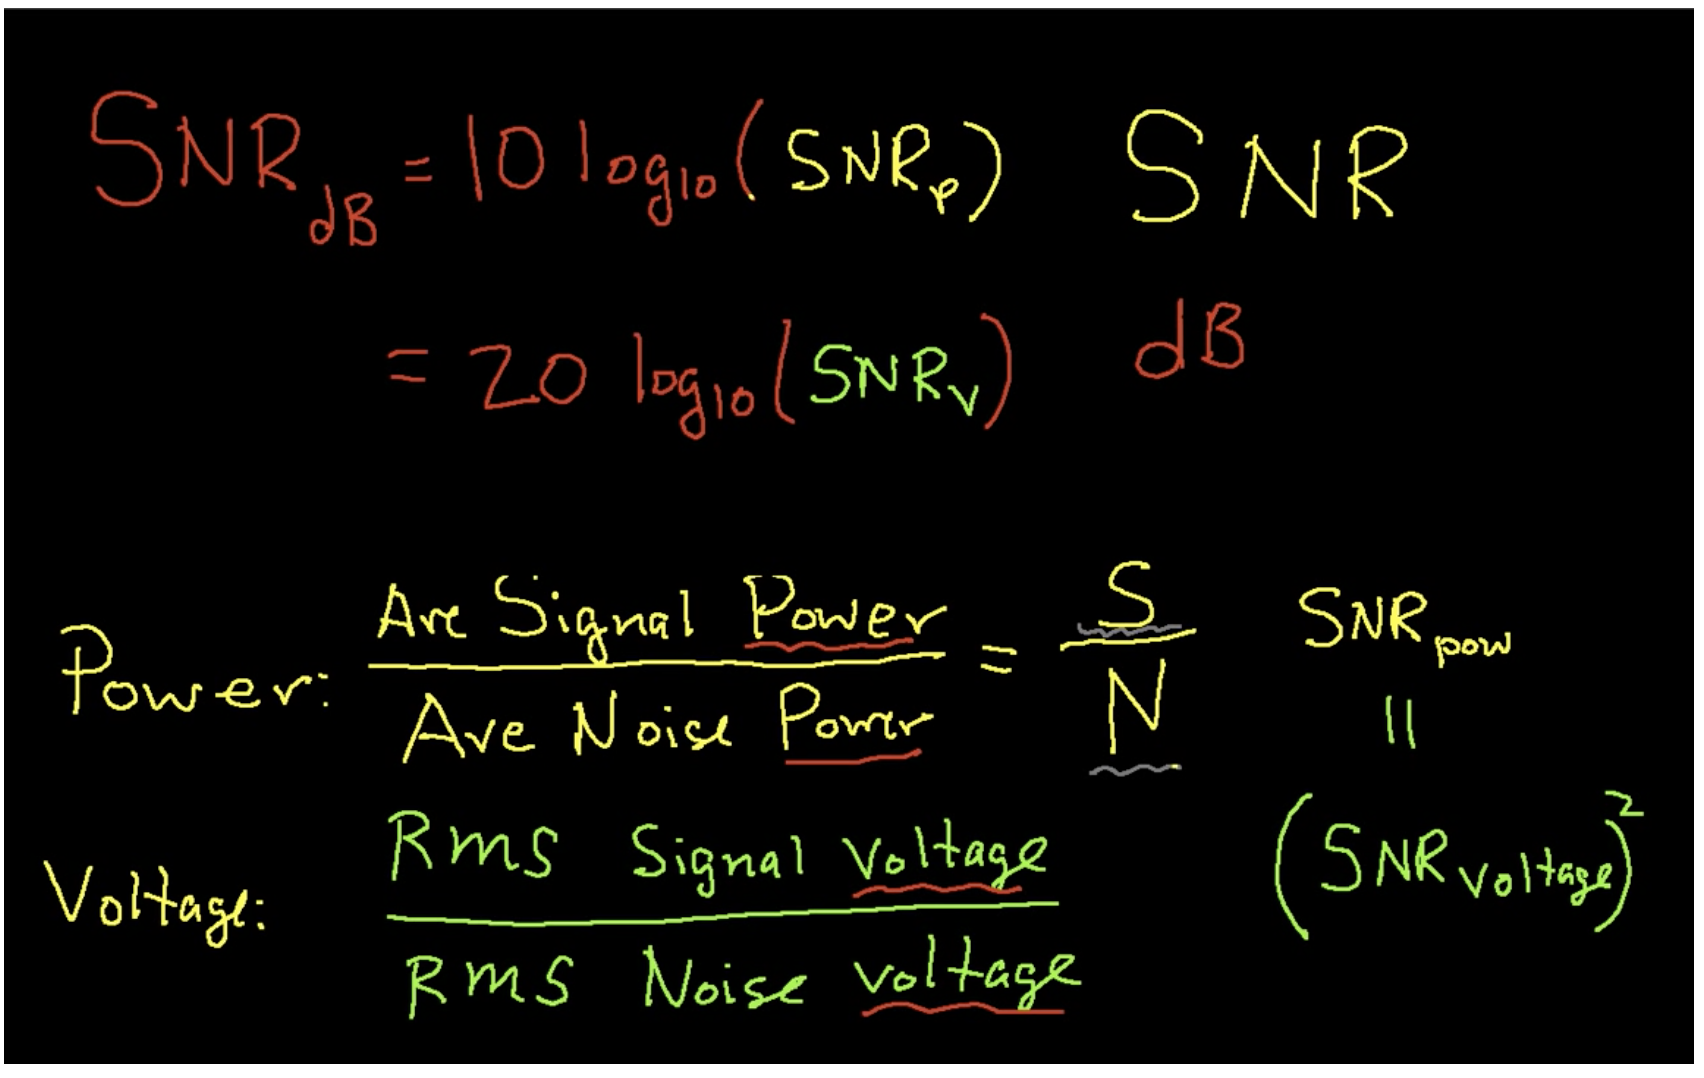 SNR_dB = 10 log_10 (SNR_p) SNR
= 20 log_10 (SNR_v) dB
Power: Ave Signal Power / Ave Noise Power = S / N SNR_pow
||
Voltage: Rms Signal Voltage / Rms Noise voltage (SNR_voltage)^2